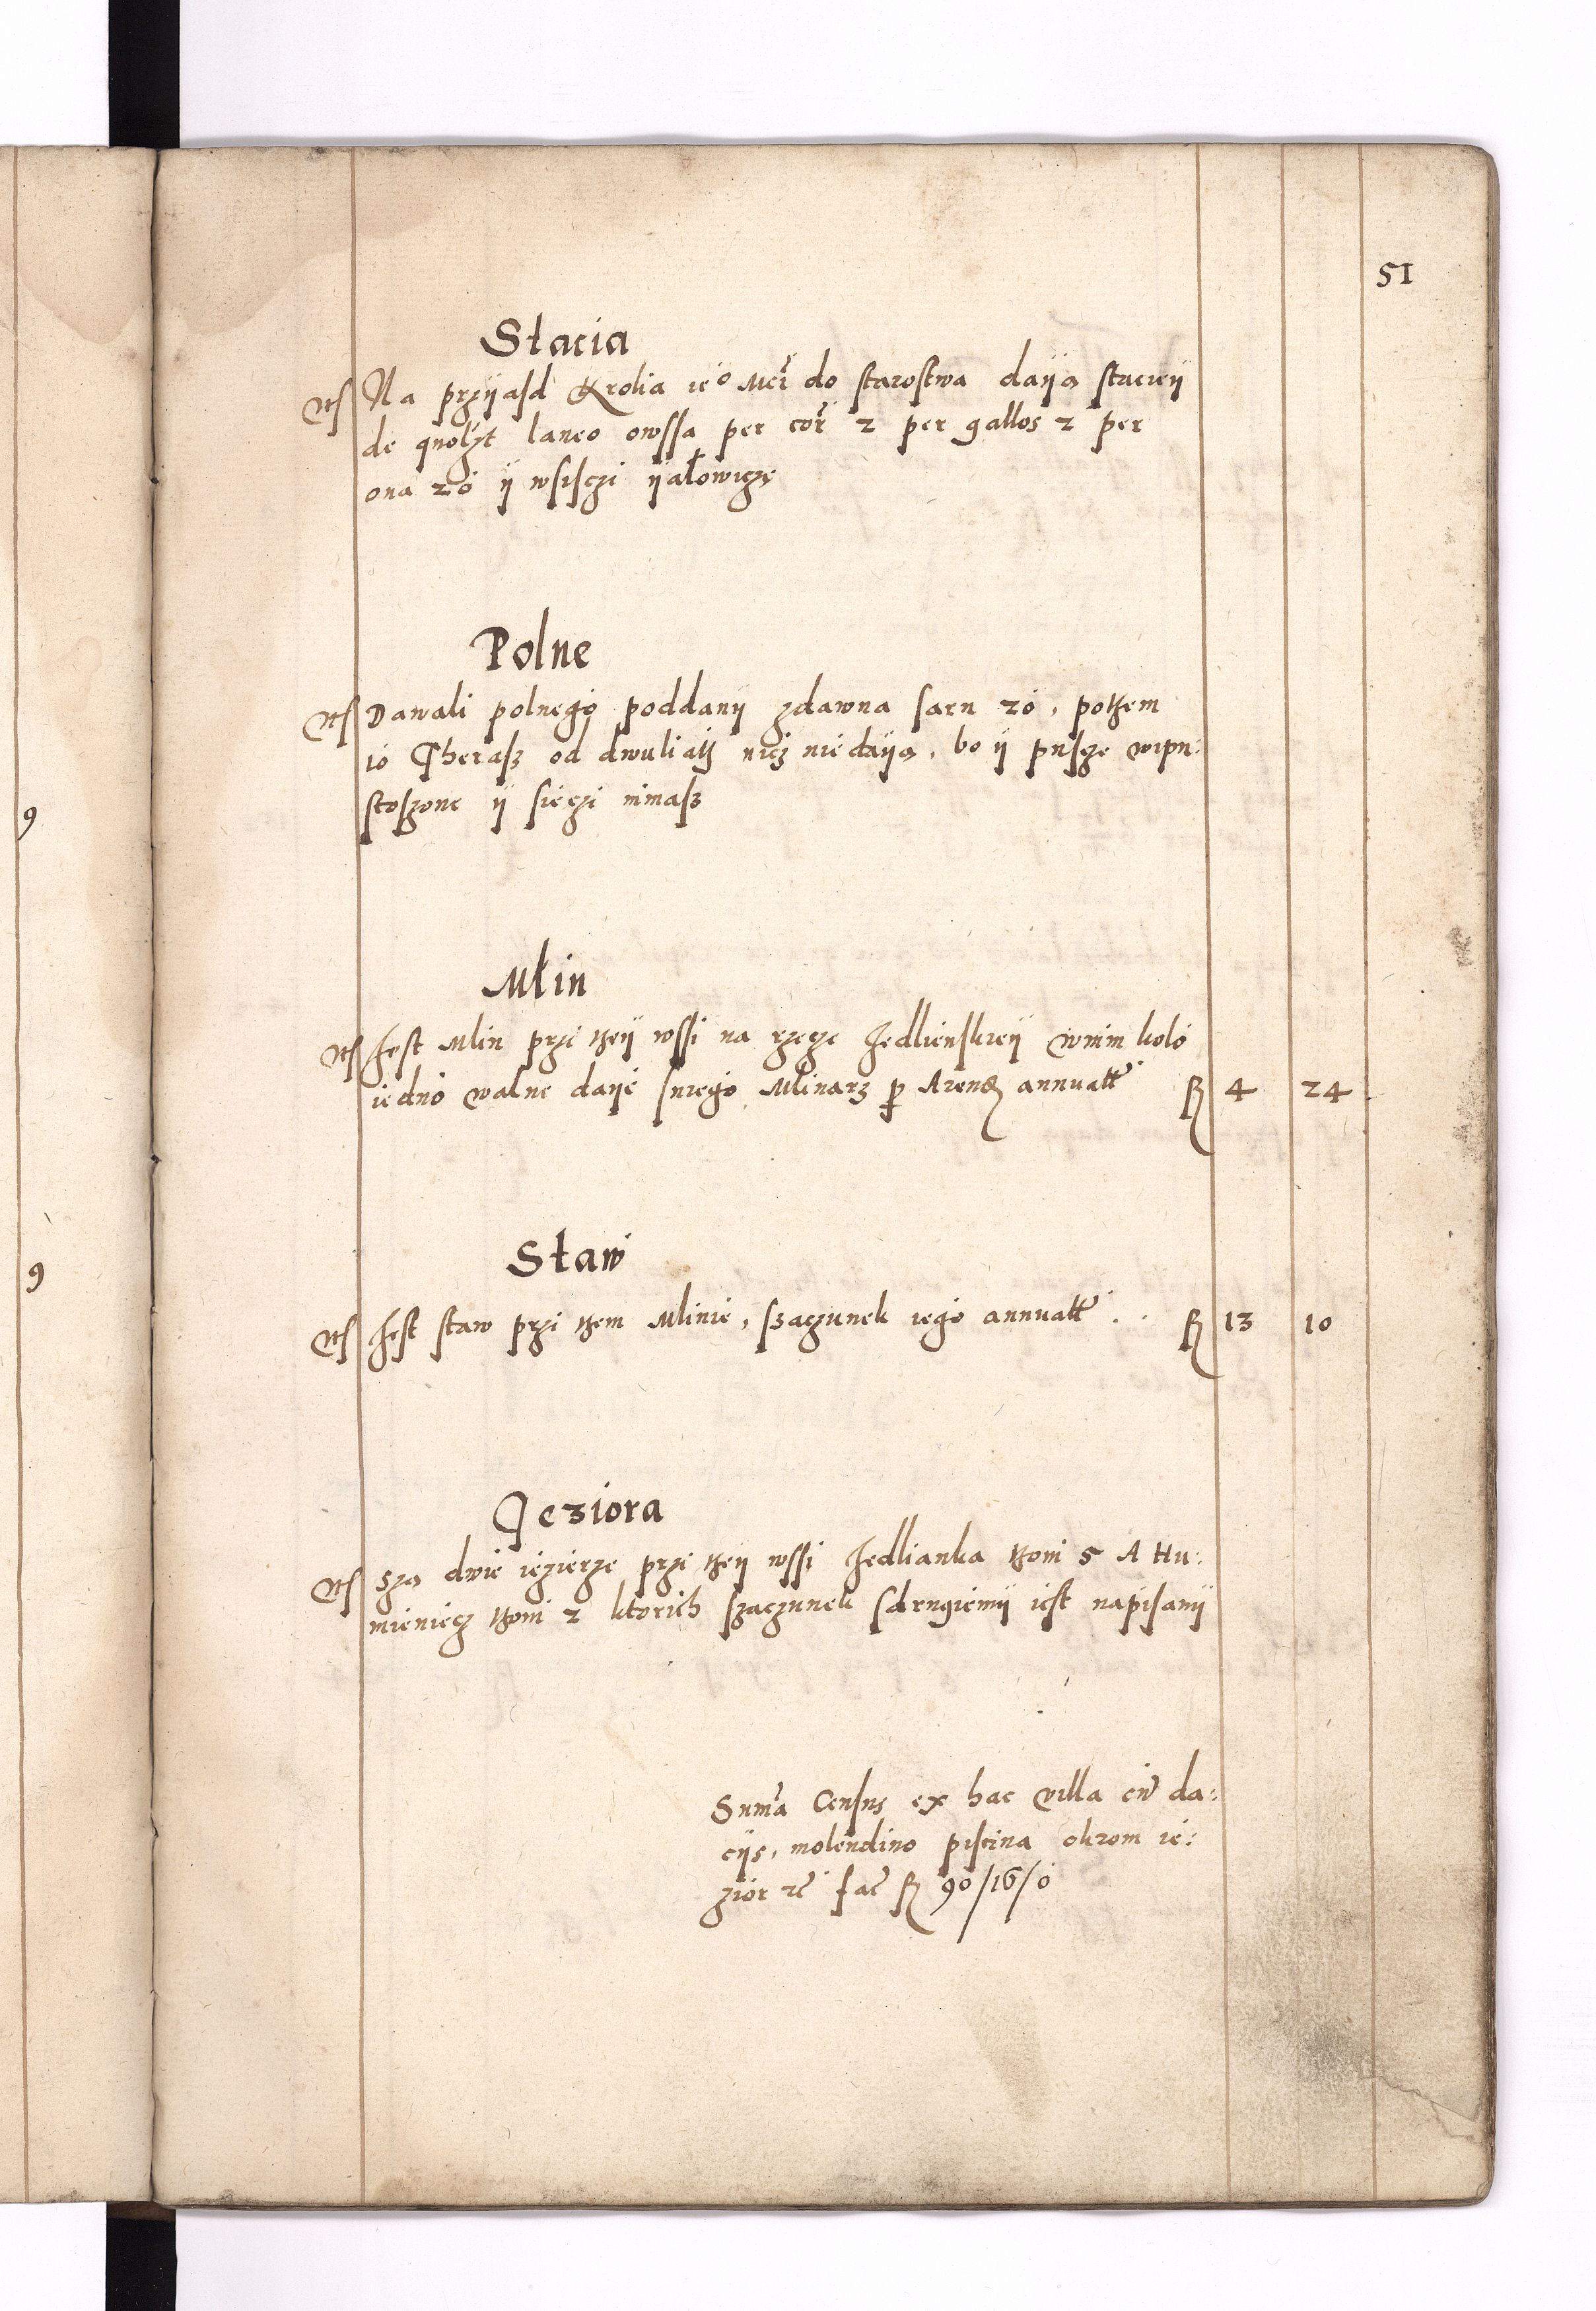 51
Stacia
Na przÿasd Krolia ieº Mći do starostwa daÿą stacieÿ
de quolȝt laneo owssa per cor̃ 2 per gallos 2 per
oua 20 ÿ wsisczi ÿałowiczę
Polne
Dawali polnego poddanÿ zdawna sarn 20, pothem
10 Therasz od dwuliath nicz nie daÿą, bo ÿ pusze wipu:
stoszone ÿ sieczi nimasz
Młin
Jest Mlin przi theÿ wssi na rzecze Jedlienskieÿ wnim koło
iedno walne daÿe sniego Mlinarz ꝑ Arendȩ annuatt̃ ß 4 24
Staw
Jest staw przi them Mlinie, szaczunek iego annuatt̃ . . ß 13 10
Jeziora
Szą dwie iezierze przi theÿ wssi Jedlianka thoni 5 A Hu:
mieniecz thoni 2 ktorich szaczunek sdrugiemÿ iest napisanÿ
Sum̃a Census ex hac villa cũ da:
ciis, molendino piscina okrom ie:
zior ꝛc̃ fac̃ ß 90/16/0
9
9